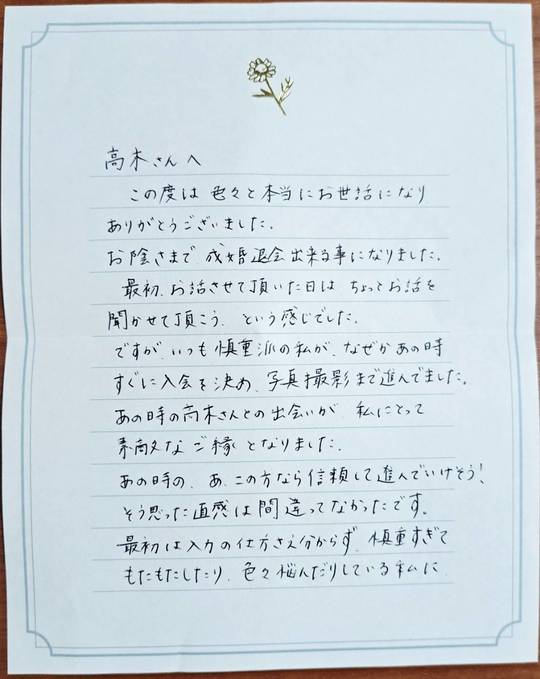 高木さんへ
この度は 色々と本当にお世話になり
ありがとうございました.
お陰さまで 成婚退会出来る事になりました.
最初、お話させて頂いた日は ちょっとお話を
聞かせて頂こう、という感じでした.
ですが、いつも慎重派の私が、なぜかあの時
すぐに入会を決め、写真撮影まで進んでました。
あの時の高木さんとの出会いが、私にとって
素敵なご縁となりました.
あの時の、あ、この方なら信頼して進んでいけそう!
そう思った直感は間違ってなかったです。
最初は入力の仕方さえ分からず、慎重すぎて
もたもたしたり、色々悩んだりしている私に